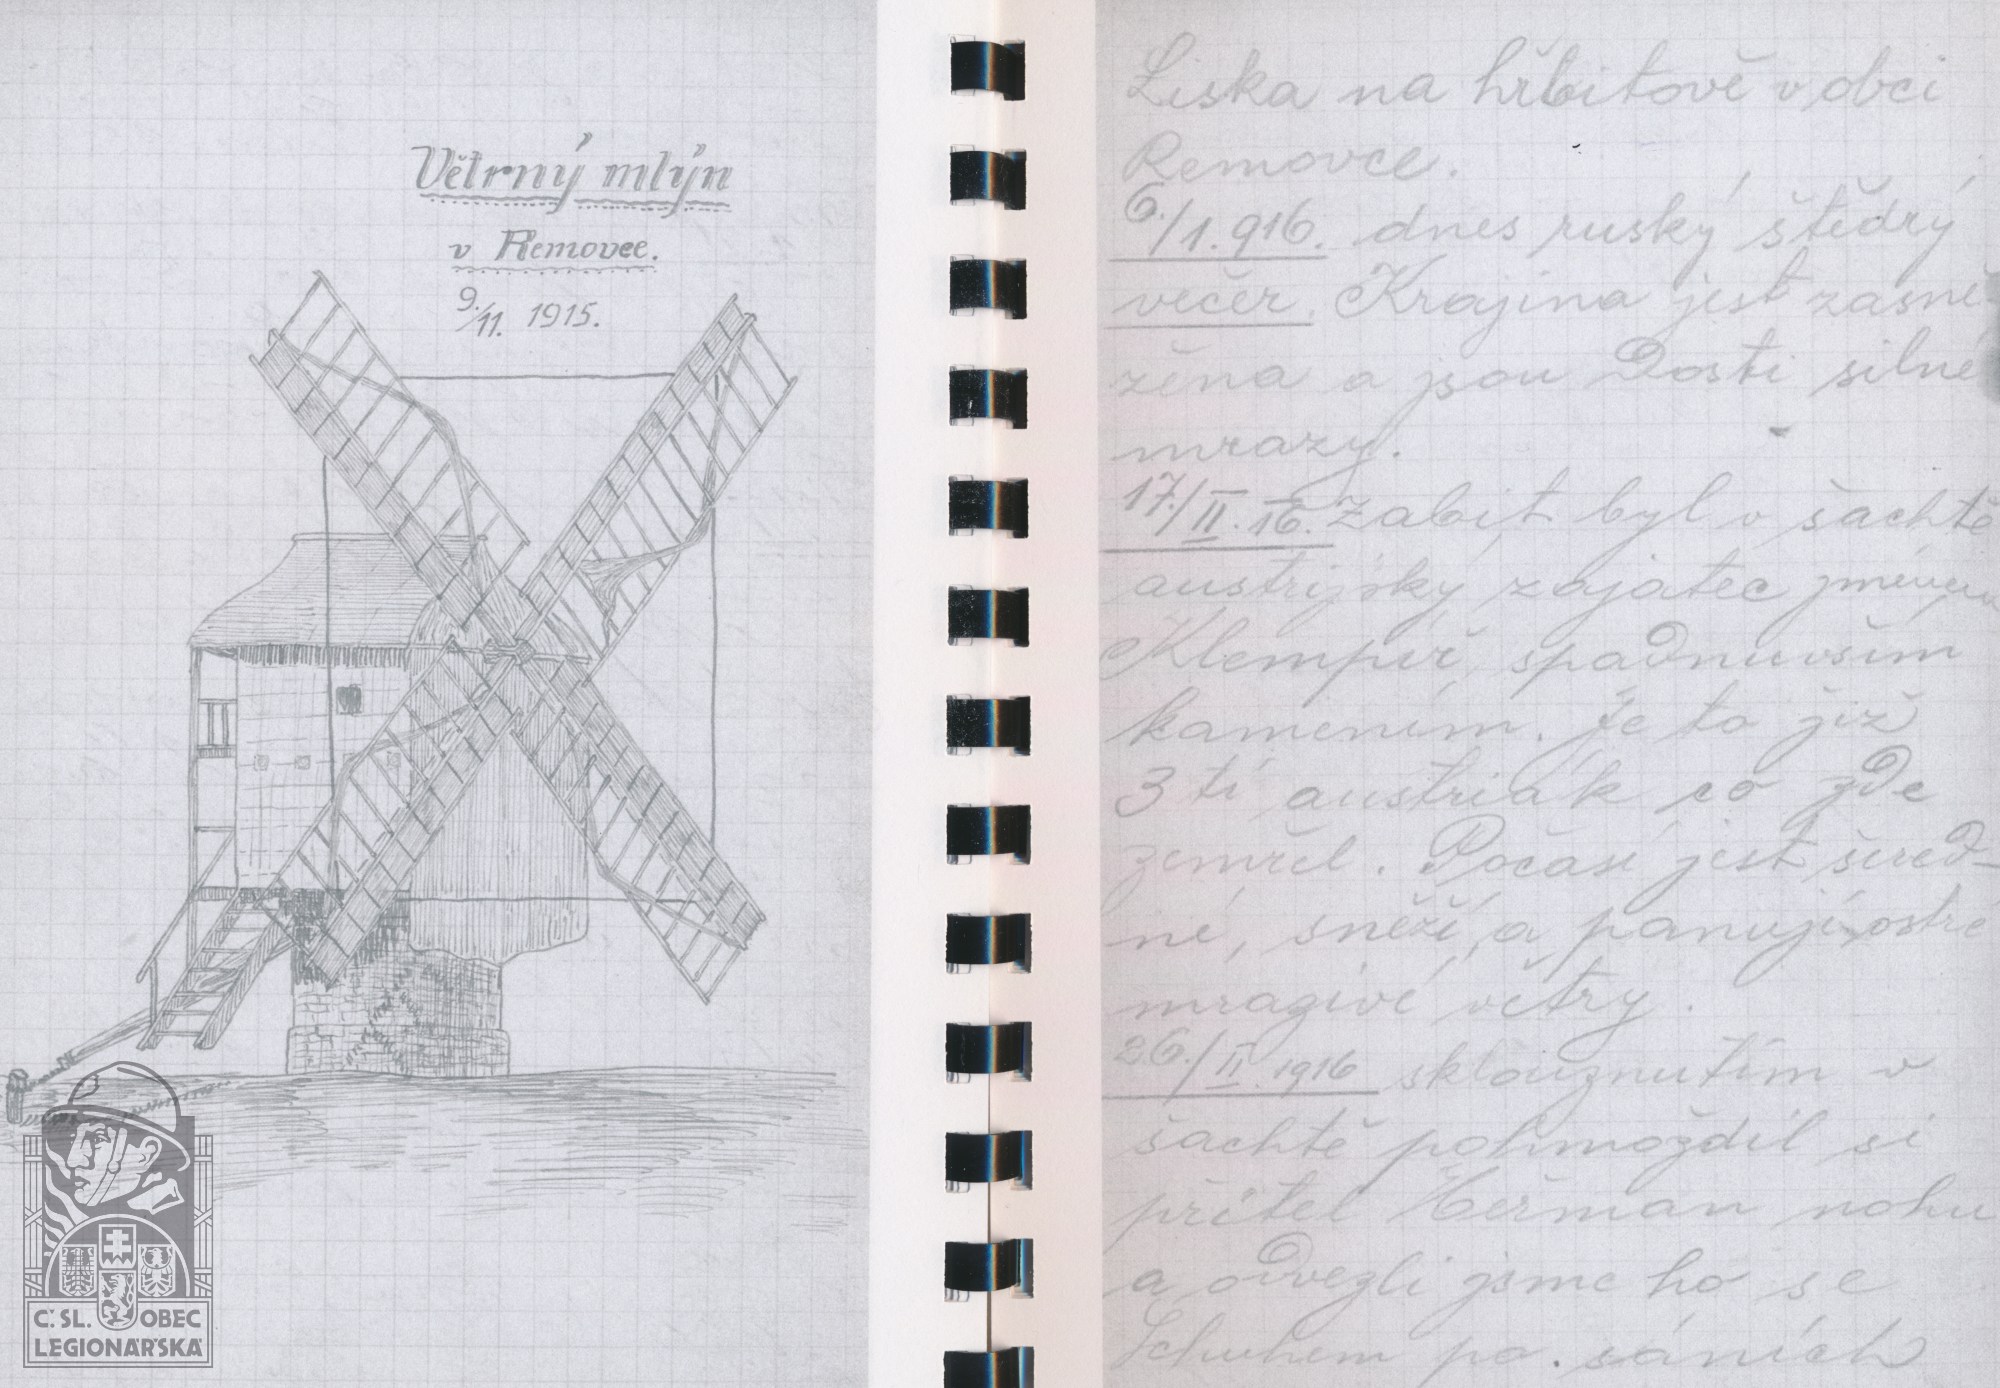 Větrný mlýn
v Removce.
9./11. 1915.
Č.SL. OBEC
LEGIONÁŘSKÁ
Liska na hřbitově v obci
Removce.
6./1. 916. dnes ruský štědrý
večer. Krajina jest zasně-
žéna a jsou dosti silné
mrazy.
17./II. 16. Zabit byl v šachtě
austrijský zajatec jménem
Klempíř spadnuvším
kamením. Je to již
3 tí austriák co zde
zemřel. Počasí jest šered-
né, sněží a panují ostré
mrazivé větry.
26./II. 1916 sklouznutím v
šachtě pohmoždil si
přítel Heřman nohu
a odvezli jsme ho se
po saních